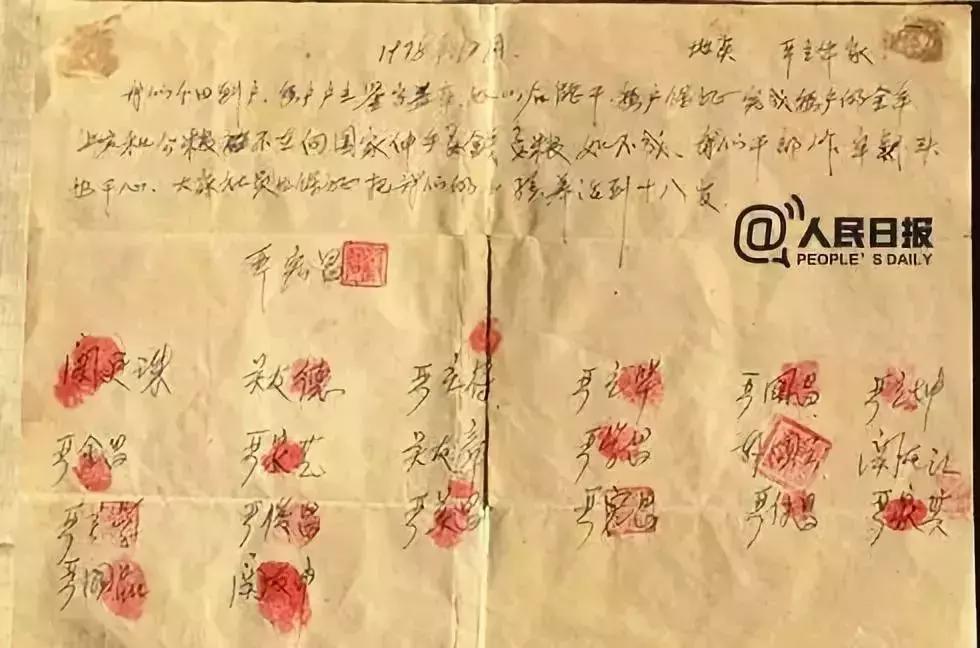 1978年12月. 地点 严立华家
我们分田到户,每户户主签字盖章,如以后能干,每户保证完成每户的全年
上交和公粮 不在向国家伸手要钱要粮 如不成、我们干部作牢杀头
也干心、大家社员也保证把我们的小孩养活到十八岁.
@人民日报
PEOPLE'S DAILY
严宏昌
关廷珠 关友德 严立符 严立华 严国昌 严立坤
严金昌 严家芝 关友章 严学昌 韩国云 关友江
严立学 严俊昌 严美昌 严宏昌 严付昌 严家其
严国品 关友申